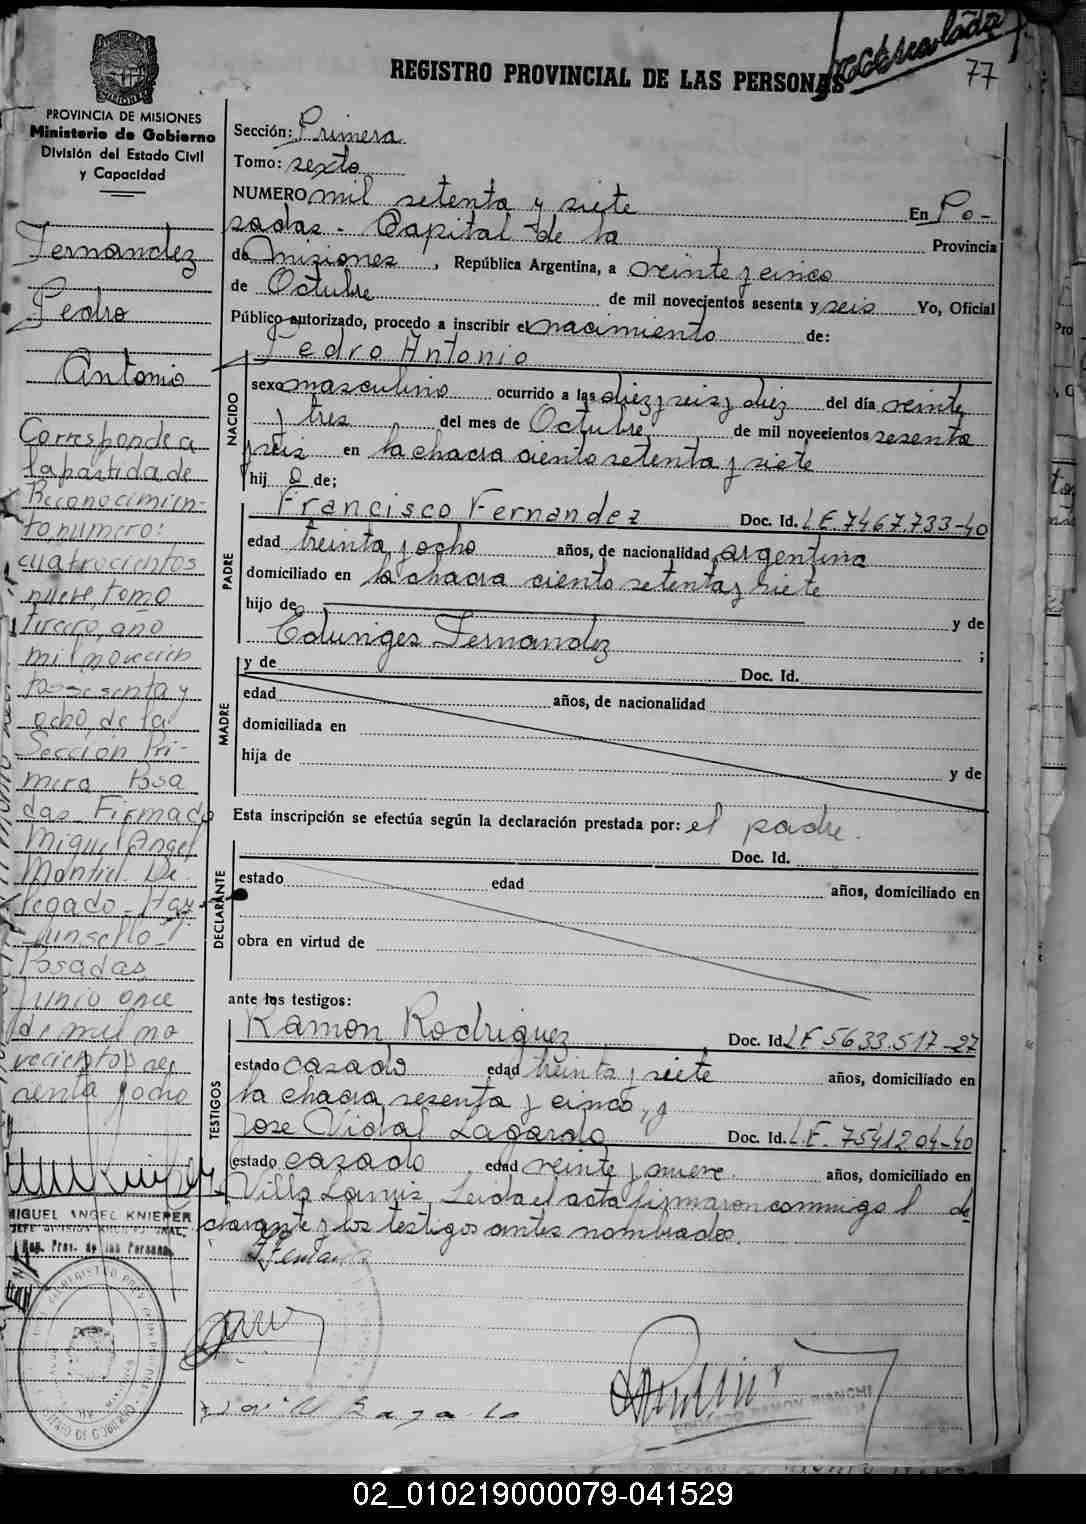 Reconsolada
77
REGISTRO PROVINCIAL DE LAS PERSONAS
PROVINCIA DE MISIONES
Ministerio de Gobierno
División del Estado Civil
y Capacidad
Fernandez
Pedro
Antonio
Corresponde a
la partida de
Reconocimien-
to, numero:
cuatrocientos
nueve, tomo
tercero, año
mil novecien
tos sesenta y
ocho, de la
Sección Pri-
mera Posa
das Firmado
Miguel Angel
Montiel. De-
legado - Hay
un sello -
Posadas,
Junio once
de mil no
vecientos se
senta y ocho
MIGUEL ANGEL KNIEPER
Reg. Prov. de las Personas
Sección: Primera
Tomo: sexto
NUMERO mil setenta y siete En Po-
sadas - Capital de la Provincia
de Misiones, República Argentina, a veinte y cinco
de Octubre de mil novecientos sesenta y seis Yo, Oficial
Público autorizado, procedo a inscribir el nacimiento de:
Pedro Antonio
NACIDO
sexo masculino ocurrido a las diez y seis y diez del día veinte
y tres del mes de Octubre de mil novecientos sesenta
y seis en la chacra ciento setenta y siete
hij o de;
PADRE
Francisco Fernandez Doc. Id. L.E. 7.467.733-40
edad treinta y ocho años, de nacionalidad argentina
domiciliado en la chacra ciento setenta y siete
hijo de y de
Eduviges Fernandez ;
MADRE
y de Doc. Id.
edad años, de nacionalidad
domiciliada en
hija de y de
Esta inscripción se efectúa según la declaración prestada por: el padre.
DECLARANTE
Doc. Id.
estado edad años, domiciliado en
obra en virtud de
ante los testigos:
TESTIGOS
Ramon Rodriguez Doc. Id. L.E. 5.633.517-27
estado casado edad treinta y siete años, domiciliado en
la chacra sesenta y cinco, y
Jose Vidal Lagardo Doc. Id. L.E. 7541204-40
estado casado edad veinte y nueve. años, domiciliado en
Villa Lanus Leida el acta firmaron conmigo el de
clarante y los testigos antes nombrados.
RAMON BIANCHI
02_010219000079-041529